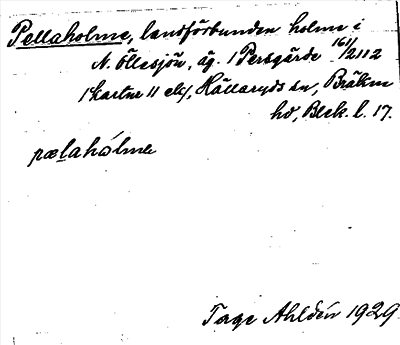 Pellaholme, landförbunden holme i
N. Öllesjön, äg. 1 Persgärde 161/2112
1 kartor 11 ek/, Hällaryds sn, Bräkne
hd, Blek. l. 17.
pælahòlme
Tage Ahldén 1929.